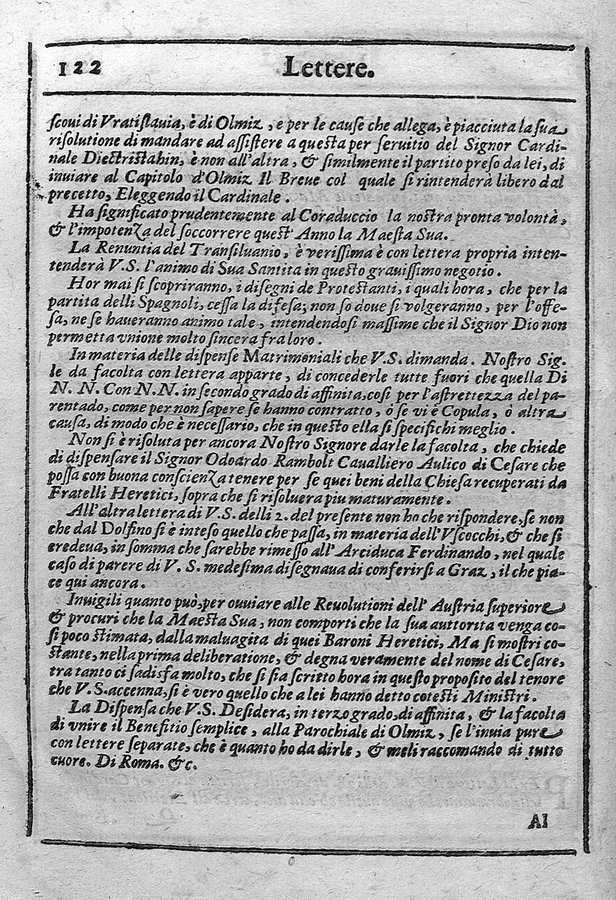 122 Lettere.
scoui di Vratislauia, è di Olmiz, e per le cause che allega, è piacciuta la sua
risolutione di mandare ad assistere a questa per seruitio del Signor Cardi-
nale Diectristahin, è non all'altra, & similmente il partito preso da lei, di
inuiare al Capitolo d'Olmiz Il Breue col quale si rintenderà libero dal
precetto, Eleggendo il Cardinale.
Ha significato prudentemente al Coraduccio la nostra pronta volontà,
& l'impotenza del soccorrere quest' Anno la Maesta Sua.
La Renuntia del Transiluanio, è verissima è con lettera propria inten-
tenderà V.S. l'animo di Sua Santita in questo grauissimo negotio.
Hor mai si scopriranno, i disegni de Protestanti, i quali hora, che per la
partita delli Spagnoli, cessa la difesa; non so doue si volgeranno, per l'offe-
sa, ne se haueranno animo tale, intendendosi massime che il Signor Dio non
permetta vnione molto sincera fra loro.
In materia delle dispense Matrimoniali che V.S. dimanda. Nostro Sig.
le da facolta con lettera apparte, di concederle tutte fuori che quella Di
N. N. Con N.N. in secondo grado di affinita, così per l'astrettezza del pa-
rentado, come per non sapere se hanno contratto, ò se vi è Copula, ò altra
causa, di modo che è necessario, che in questo ella si specifichi meglio.
Non si è risoluta per ancora Nostro Signore darle la facolta, che chiede
di dispensare il Signor Odoardo Rambolt Caualliero Aulico di Cesare che
possa con buona conscienza tenere per se quei beni della Chiesa recuperati da
Fratelli Heretici, sopra che si risoluera piu maturamente.
All'altra lettera di V.S. delli 2. del presente non ho che rispondere, se non
che dal Dolfino si è inteso quello che passa, in materia dell'Vscocchi, & che si
eredeua, in somma che sarebbe rimesso all'Arciduca Ferdinando, nel quale
caso di parere di V. S. medesima disegnaua di conferirsi a Graz, il che pia-
ce qui ancora.
Inuigili quanto può, per ouuiare alle Reuolutioni dell' Austria superiore
& procuri che la Maesta Sua, non comporti che la sua auttorita venga co-
si poco stimata, dalla maluagita di quei Baroni Heretici, Ma si mostri co-
stante, nella prima deliberatione, & degna veramente del nome di Cesare,
tra tanto ci sadisfa molto, che si sia scritto hora in questo proposito del tenore
che V.S.accenna, si è vero quello che a lei hanno detto cotesti Ministri.
La Dispensa che V.S. Desidera, in terzo grado, di affinita, & la facolta
di vnire il Benefitio semplice, alla Parochiale di Olmiz, se l'inuia pure
con lettere separate, che è quanto ho da dirle, & meli raccomando di tutto
cuore. Di Roma. &c.
Al